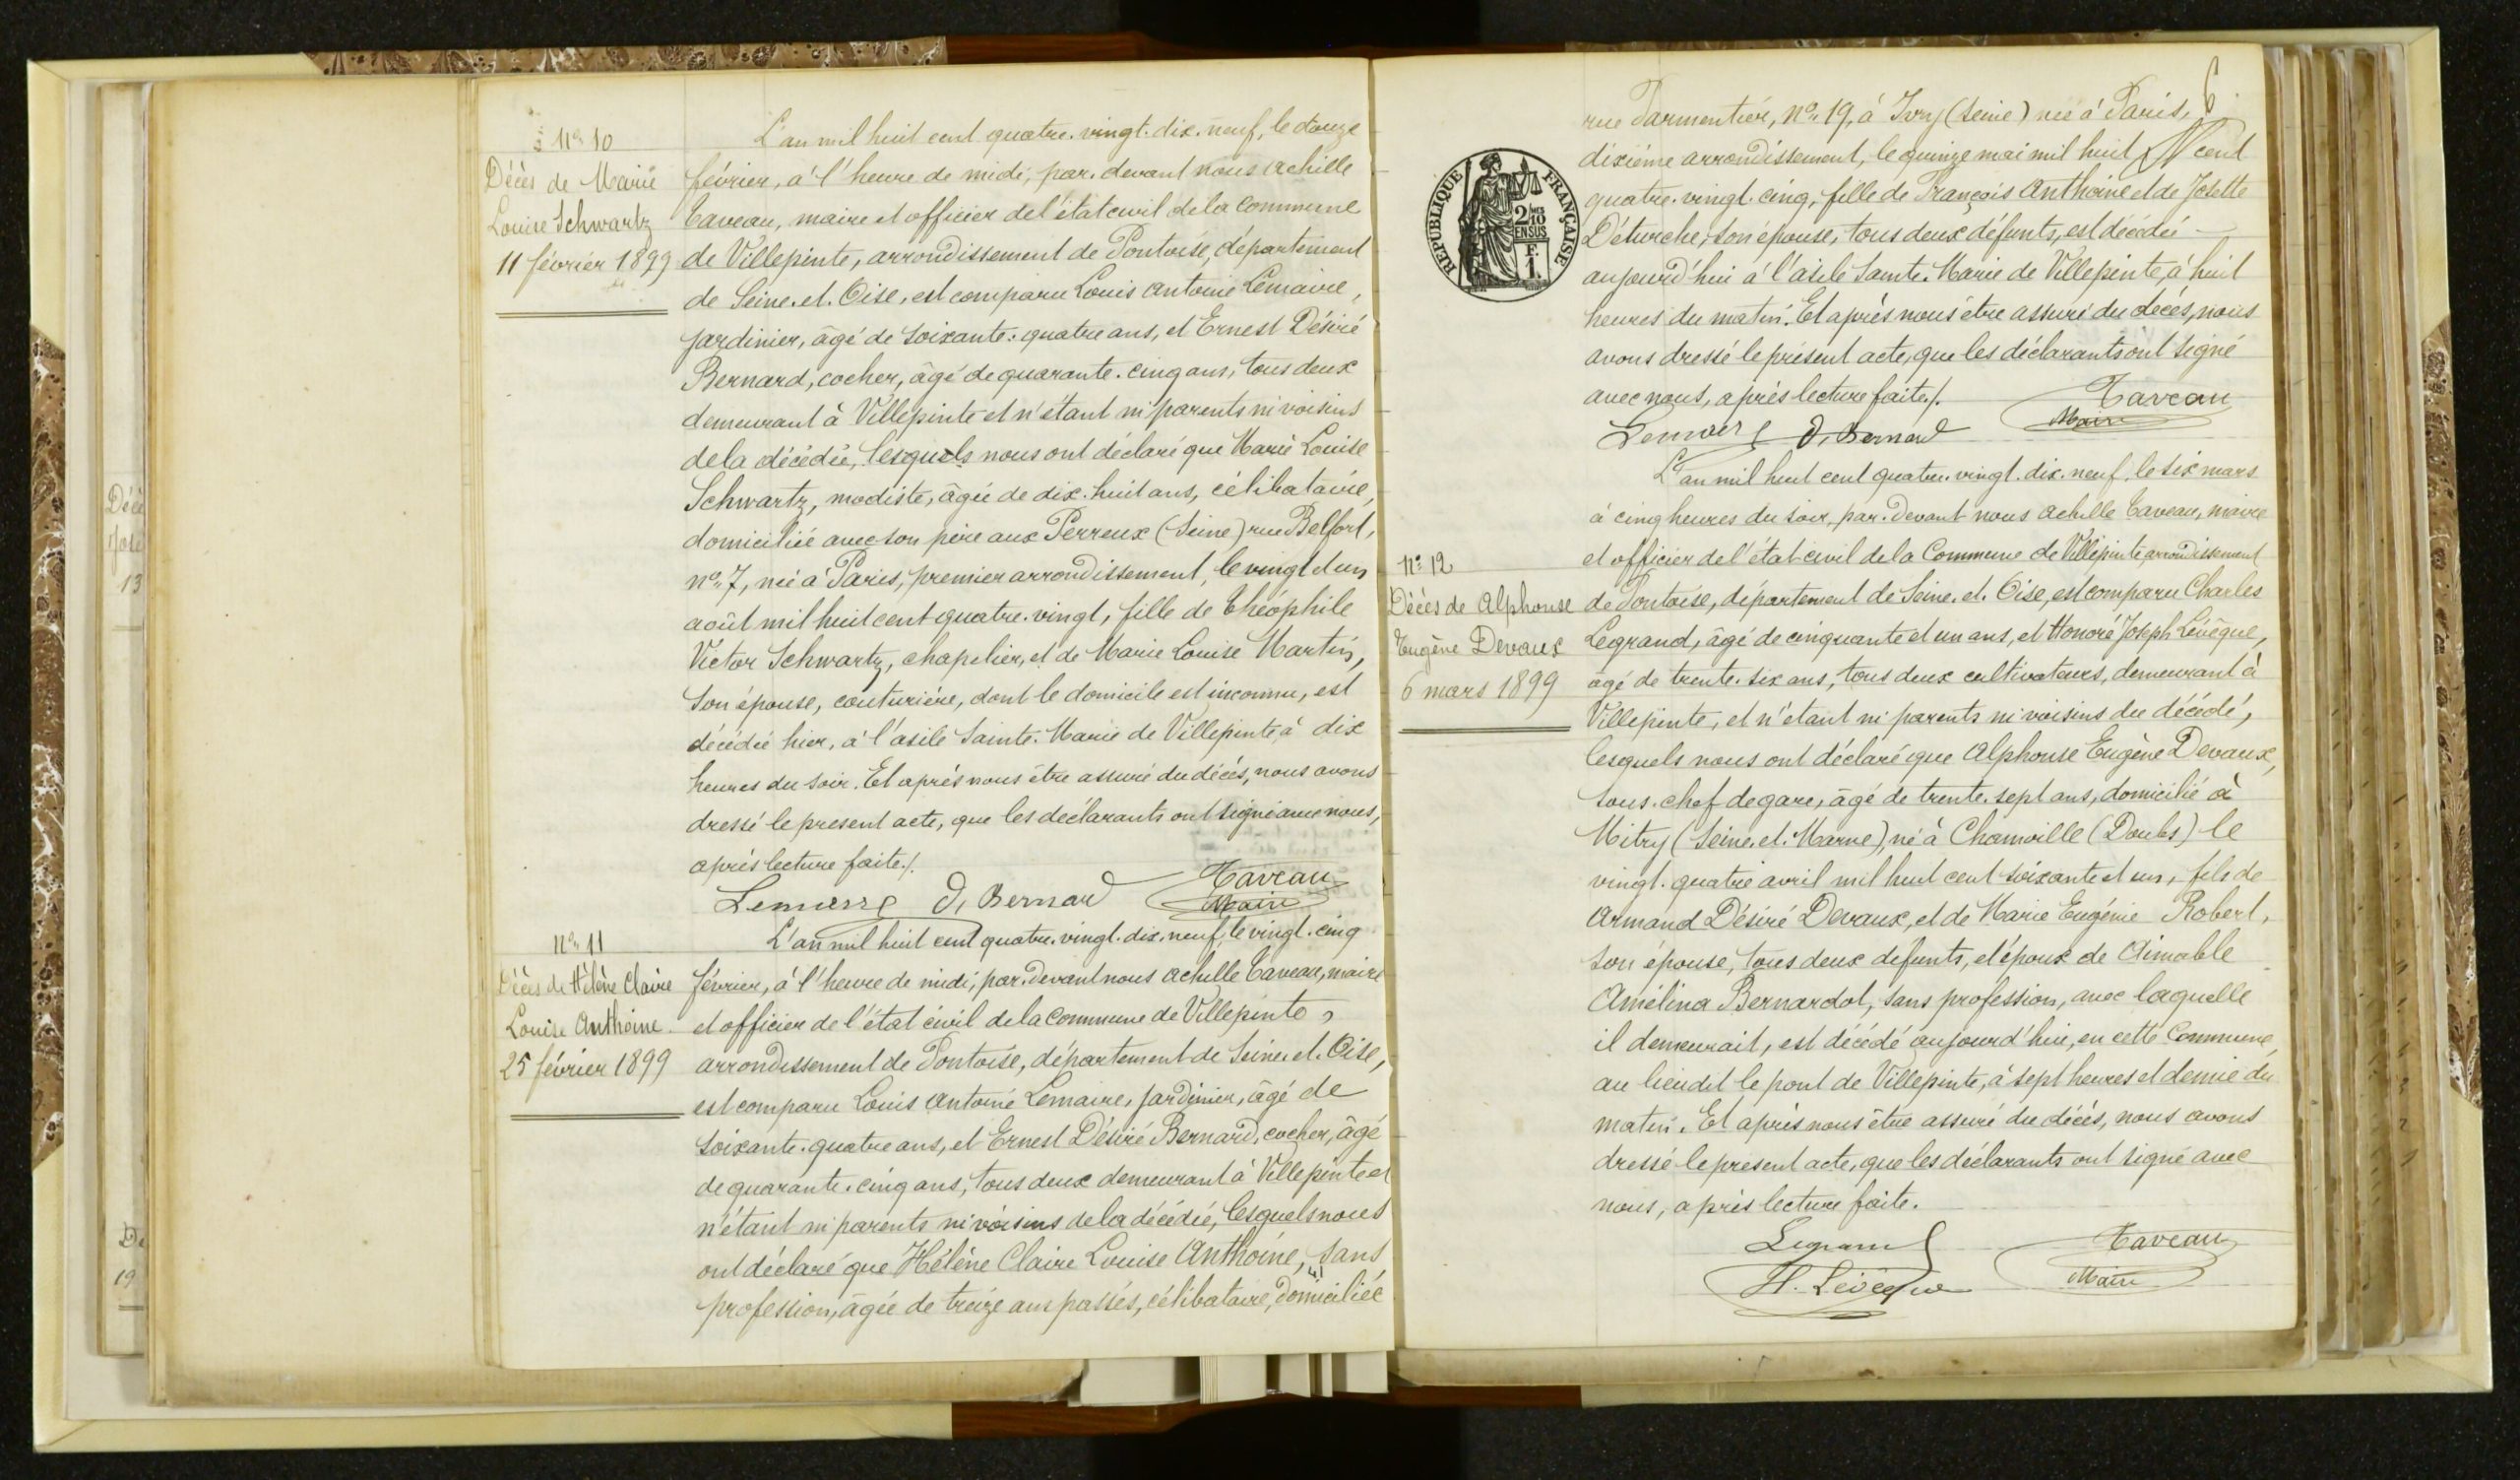 N° 10
Décès de Marie
Louise Schwartz
11 février 1899
L'an mil huit cent quatre-vingt-dix-neuf, le douze
février, à l'heure de midi, par-devant nous Achille
Taveau, maire et officier de l'état civil de la Commune
de Villepinte, arrondissement de Pontoise, département
de Seine-et-Oise, est comparu Louis Antoine Lemaire,
jardinier, âgé de soixante-quatre ans, et Ernest Désiré
Bernard, cocher, âgé de quarante-cinq ans, tous deux
demeurant à Villepinte et n'étant ni parents ni voisins
de la décédée, lesquels nous ont déclaré que Marie Louise
Schwartz, modiste, âgée de dix-huit ans, célibataire,
domiciliée avec son père aux Perreux (Seine) rue Belfort,
n° 7, née à Paris, premier arrondissement, le vingt et un
août mil huit cent quatre-vingt, fille de Théophile
Victor Schwartz, chapelier, et de Marie Louise Martin,
son épouse, couturière, dont le domicile est inconnu, est
décédée hier, à l'asile Sainte-Marie de Villepinte, à dix
heures du soir. Et après nous être assuré du décès, nous avons
dressé le présent acte, que les déclarants ont signé avec nous,
après lecture faite./.
Lemaire D. Bernard Taveau
Maire
N° 11
Décès de Hélène Claire
Louise Anthoine
25 février 1899
L'an mil huit cent quatre-vingt-dix-neuf, le vingt-cinq
février, à l'heure de midi, par-devant nous Achille Taveau, maire
et officier de l'état civil de la Commune de Villepinte,
arrondissement de Pontoise, département de Seine-et-Oise,
est comparu Louis Antoine Lemaire, jardinier, âgé de
soixante-quatre ans, et Ernest Désiré Bernard, cocher, âgé
de quarante-cinq ans, tous deux demeurant à Villepinte et
n'étant ni parents ni voisins de la décédée, lesquels nous
ont déclaré que Hélène Claire Louise Anthoine, sans
profession, âgée de treize ans passés, célibataire, domiciliée
41
6
rue Parmentier, N° 19, à Ivry (Seine) née à Paris,
dixième arrondissement, le quinze mai mil huit cent
quatre-vingt-cinq, fille de François Anthoine et de Josette
Déturche, son épouse, tous deux défunts, est décédée
aujourd'hui à l'asile Sainte-Marie de Villepinte, à huit
heures du matin. Et après nous être assuré du décès, nous
avons dressé le présent acte, que les déclarants ont signé
avec nous, après lecture faite./.
Taveau
Maire
Lemaire D. Bernard
RÉPUBLIQUE FRANÇAISE
2/10
EN SUS
F.
1.
N° 12
Décès de Alphonse
Eugène Devaux
6 mars 1899
L'an mil huit cent quatre-vingt-dix-neuf, le six mars
à cinq heures du soir, par-devant nous Achille Taveau, maire
et officier de l'état civil de la Commune de Villepinte, arrondissement
de Pontoise, département de Seine-et-Oise, est comparu Charles
Legrand, âgé de cinquante et un ans, et Honoré Joseph Lévêque,
âgé de trente-six ans, tous deux cultivateurs, demeurant à
Villepinte, et n'étant ni parents ni voisins du décédé,
lesquels nous ont déclaré que Alphonse Eugène Devaux,
sous-chef de gare, âgé de trente-sept ans, domicilié à
Mitry (Seine-et-Marne), né à Chamville (Doubs) le
vingt-quatre avril mil huit cent soixante et un, fils de
Armand Désiré Devaux, et de Marie Eugénie Robert,
son épouse, tous deux défunts, et époux de Aimable
Amélina Bernardot, sans profession, avec laquelle
il demeurait, est décédé aujourd'hui, en cette Commune,
au lieudit le pont de Villepinte, à sept heures et demie du
matin. Et après nous être assuré du décès, nous avons
dressé le présent acte, que les déclarants ont signé avec
nous, après lecture faite.
Legrand Taveau
H. Lévêque Maire